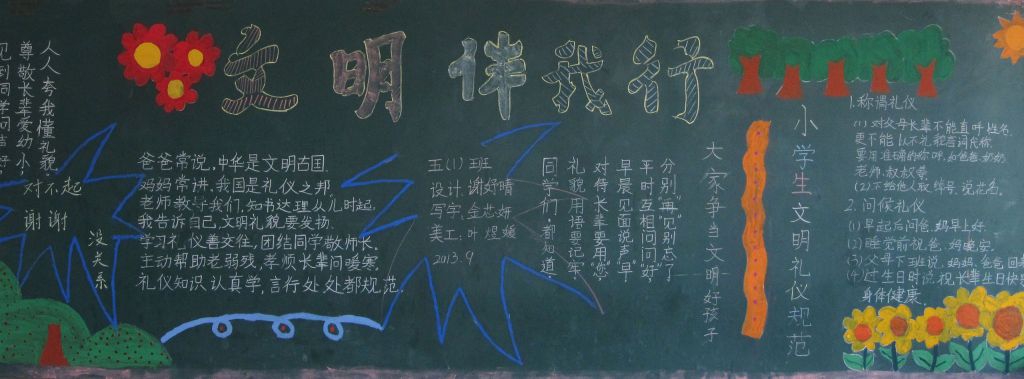 文明伴我行
人人夸我懂礼貌
尊敬长辈爱幼小，
对不起
谢谢
没关系
爸爸常说，中华是文明古国.
妈妈常讲，我国是礼仪之邦.
老师教导我们，知书达理从儿时起.
我告诉自己，文明礼貌要发扬.
学习礼仪善交往，团结同学敬师长.
主动帮助老弱残，孝顺长辈问暖寒.
礼仪知识认真学，言行处处都规范.
五(1)班
设计：谢妤晴
写字：金芯妍
美工：叶煜媛
2013.9
同学们，都知道，
礼貌用语要记牢，
对待长辈要用“您”
早晨见面说声“早”
平时互相问问“好”
分别“再见”别忘了
大家争当文明好孩子
小学生文明礼仪规范
1.称谓礼仪
(1)对父母长辈不能直呼姓名.
更不能以不礼貌言词代称
要用准确的称呼，如爸爸、奶奶.
老师、叔叔等
(2)不给他人取绰号、说花名.
2.问候礼仪
(1)早起后问爸、妈早上好.
(2)睡觉前祝爸、妈晚安.
(3)父母下班说，妈妈、爸爸回
(4)过生日时说，祝长辈生日快
身体健康.